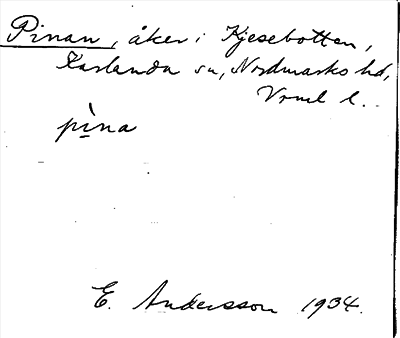 Pinan, åker i Kjesebotten,
Karlanda sn, Nordmarks hd,
Vrml l.
pìna
E. Andersson 1934.